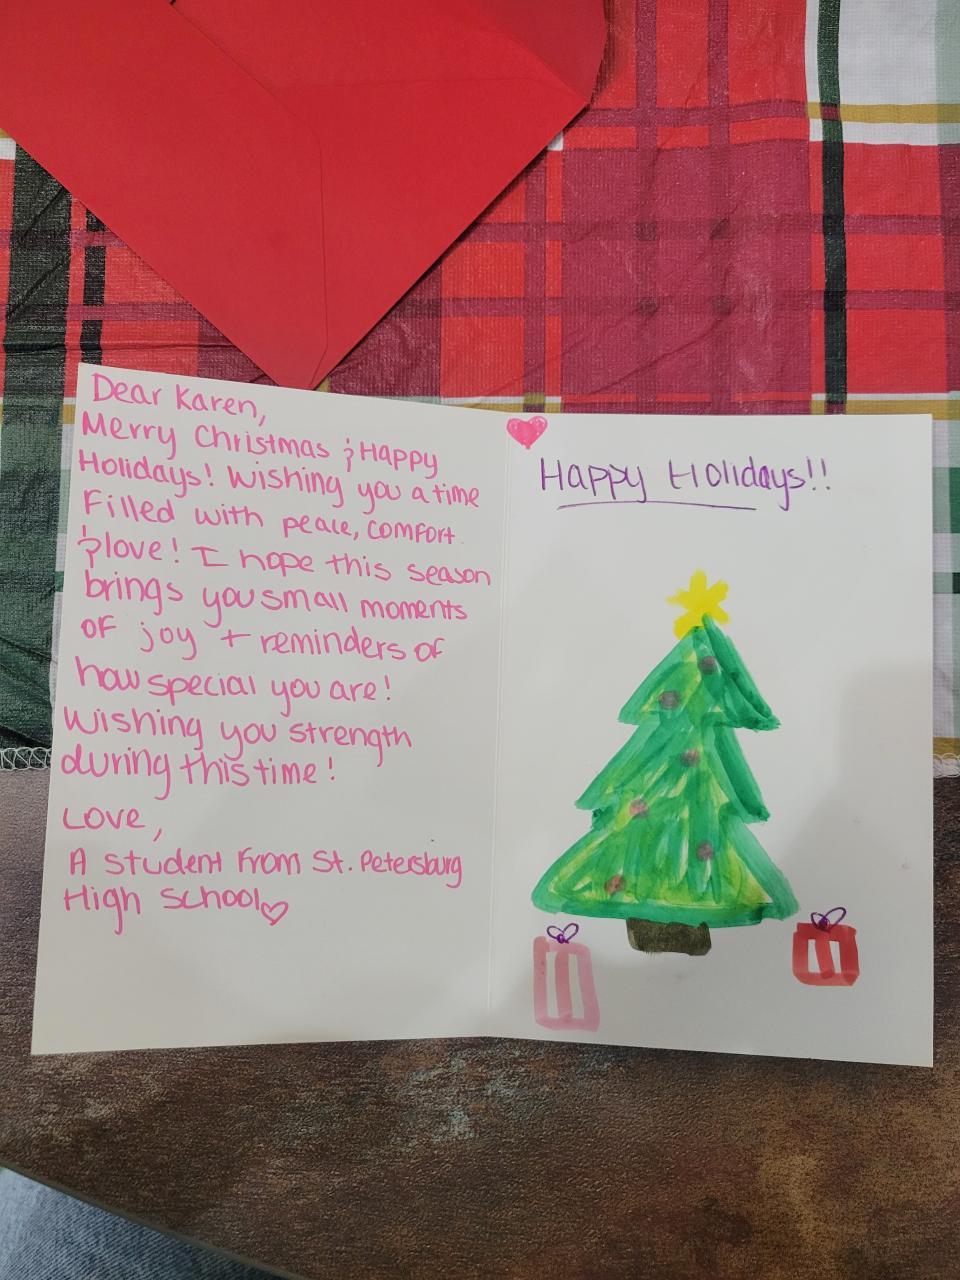 Dear Karen,
Merry Christmas & Happy
Holidays! Wishing you a time
Filled with peace, comfort
& love! I hope this season
brings you small moments
of joy + reminders of
how special you are!
Wishing you strength
during this time!
Love,
A student from St. Petersburg
High School
Happy Holidays!!